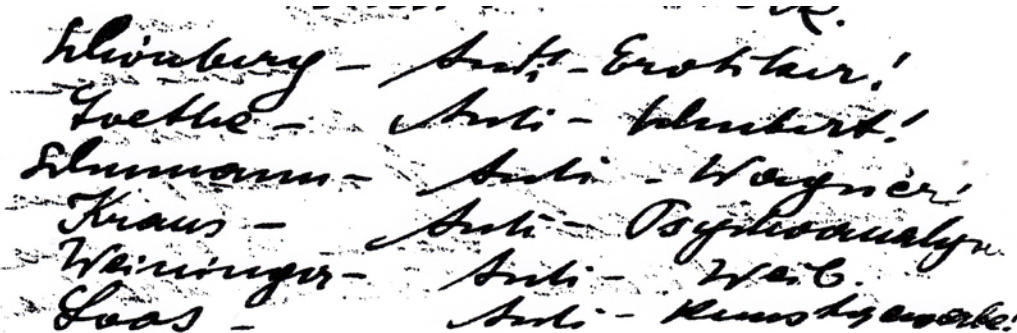 Schönberg – Anti-Erotiker!
Goethe – Anti – Schubert!
Schumann – Anti – Wagner!
Kraus – Anti – Psychoanalyse
Weininger – Anti – Weib.
Loos – Anti – Kunstgewerbe!